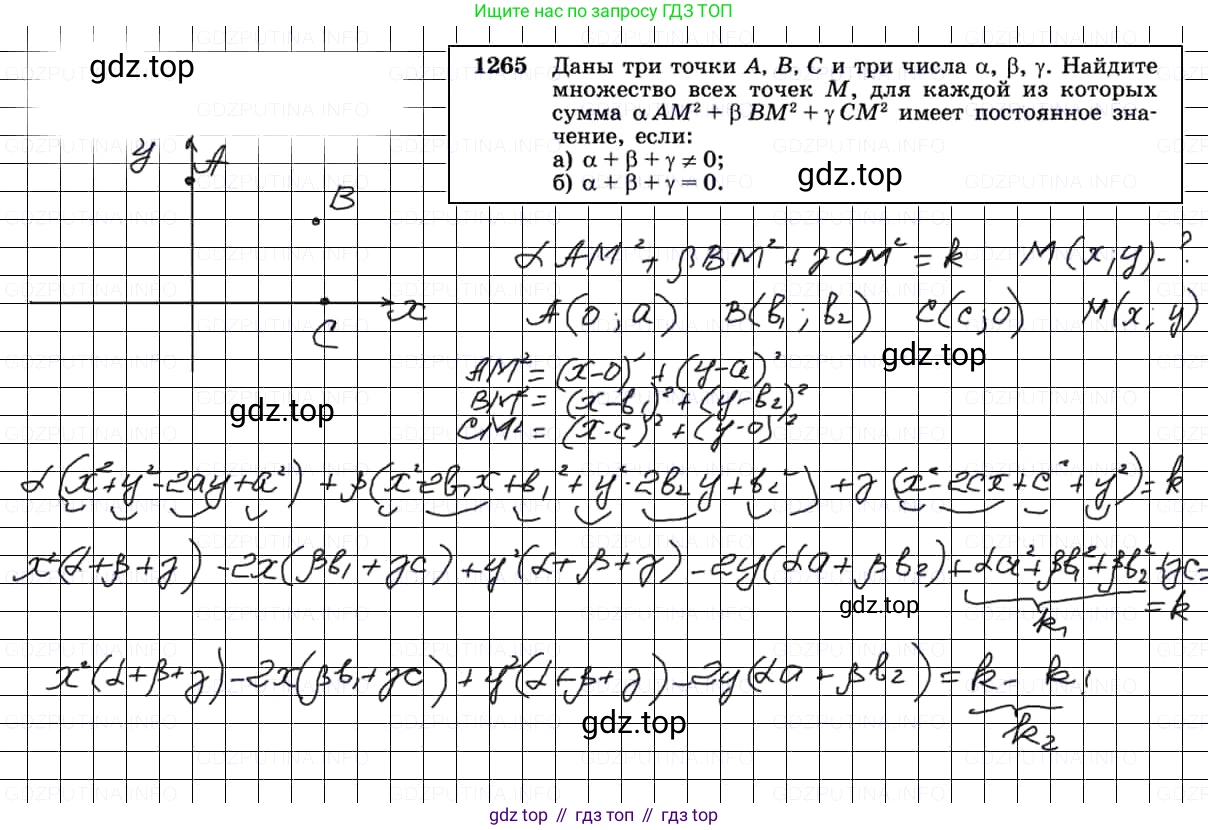 Ищите нас по запросу ГДЗ ТОП
gdz.top
1265 Даны три точки A, B, C и три числа α, β, γ. Найдите
множество всех точек M, для каждой из которых
сумма α AM² + β BM² + γ CM² имеет постоянное зна-
чение, если:
а) α + β + γ ≠ 0;
б) α + β + γ = 0.
gdz.top
y A
B
x
C
α AM² + β BM² + γ CM² = k M(x; y) - ?
A(0; a) B(b₁; b₂) C(c; 0) M(x; y)
gdz.top
AM² = (x-0)² + (y-a)²
BM² = (x-b₁)² + (y-b₂)²
CM² = (x-c)² + (y-0)²
gdz.top
α(x²+y²-2ay+a²) + β(x²-2b₁x+b₁²+y²-2b₂y+b₂²) + γ(x²-2cx+c²+y²) = k
x²(α+β+γ) - 2x(βb₁+γc) + y²(α+β+γ) - 2y(αa+βb₂) + αa²+βb₁²+βb₂²+γc=
gdz.top
k₁ = k
x²(α+β+γ) - 2x(βb₁+γc) + y²(α+β+γ) - 2y(αa+βb₂) = k - k₁
gdz.top
k₂
gdz.top // гдз топ // gdz top